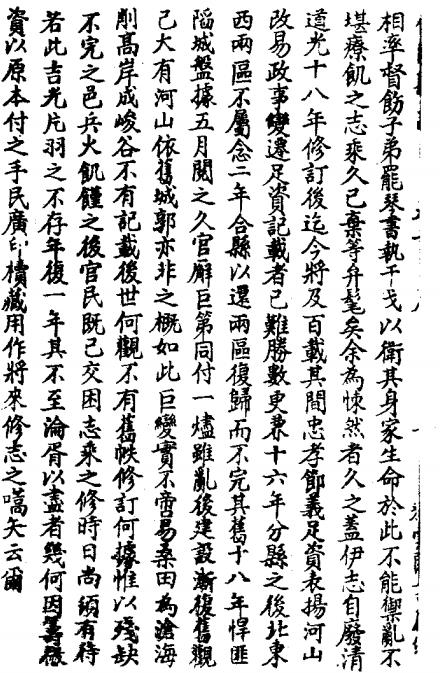 相率督飭子弟罷琴書執干戈以衛其身家生命於此不能禦亂不
堪療飢之志乘久已棄等弁髦矣余為悚然者久之蓋伊志自廢清
道光十八年修訂後迄今將及百載其間忠孝節義足資表揚河山
改易政事變遷足資記載者已難勝數更兼十六年分縣之後北東
西兩區不屬念二年合縣以還兩區復歸而不完其舊十八年悍匪
陷城盤據五月閱之久官廨巨第同付一燼雖亂後建設漸復舊觀
已大有河山依舊城郭亦非之概如此巨變實不啻易桑田為滄海
削高岸成峻谷不有記載後世何觀不有舊帙修訂何據惟以殘缺
不完之邑兵火飢饉之後官民既已交困志乘之修時日尚須有待
若此吉光片羽之不存年復一年其不至淪胥以盡者幾何因籌
資以原本付之手民廣印櫝藏用作將來修志之嚆矢云爾